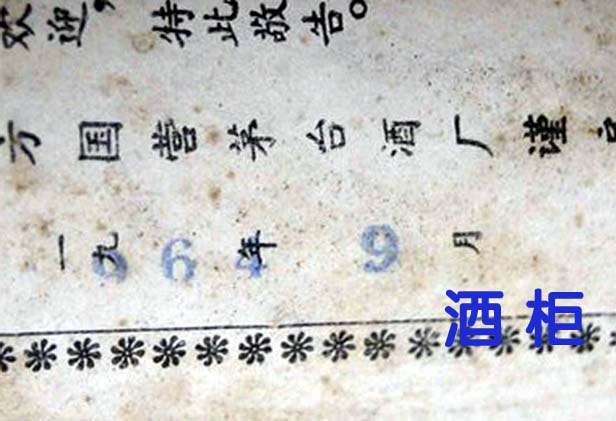 欢迎，特此敬告。
方国营茅台酒厂谨
一九964年 9月
酒柜